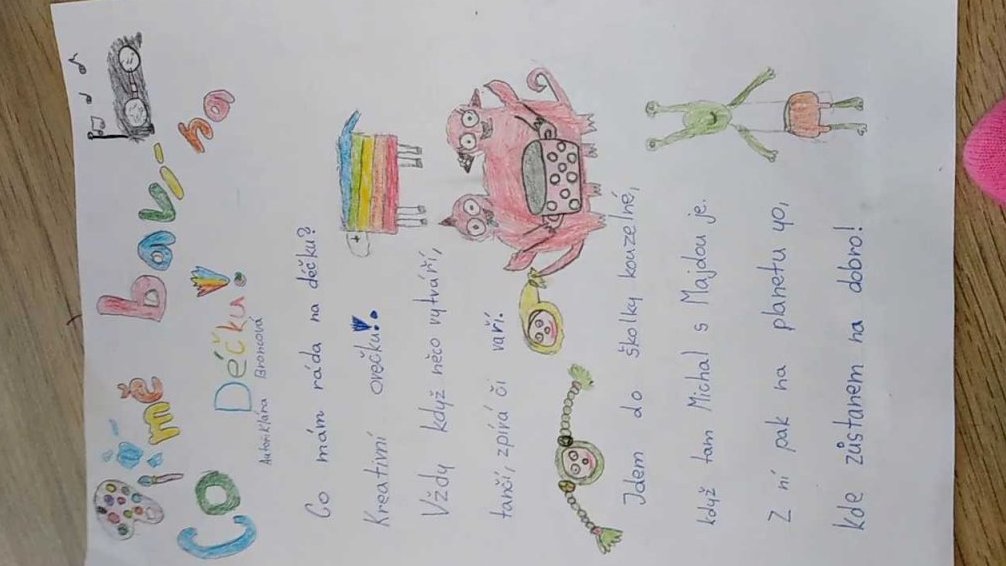 Co mě baví na
Déčku!
Autor: Klára Broncová
Co mám ráda na déčku?
Kreativní oečku!
Vždy když něco vytváří,
tančí, zpívá či vaří.
Jdem do školky kouzelné,
když tam Michal s Majdou je.
Z ní pak na planetu yo,
kde zůstanem na dobro!